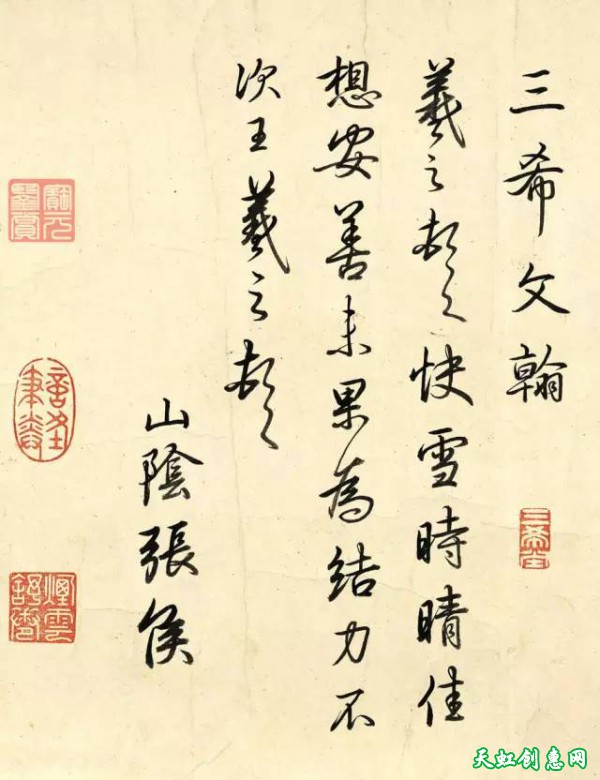 三希文翰
羲之頓首快雪時晴佳
想安善未果為結力不
次王羲之頓首
山陰張侯
三希堂
天虹创惠网